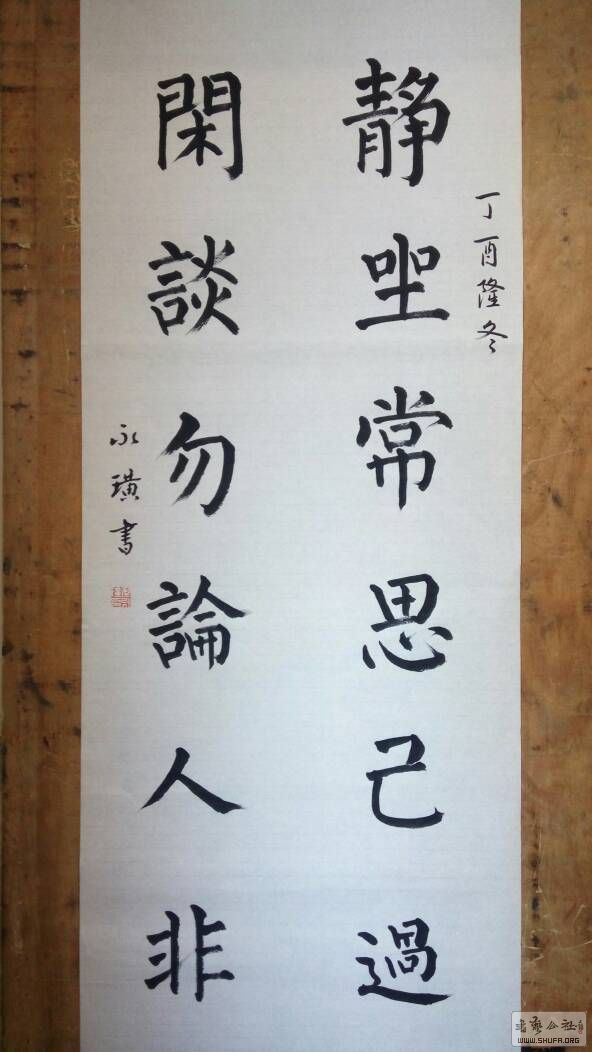 丁酉隆冬
静坐常思己過
閑談勿論人非
永璜書
書藝公社
WWW.SHUFA.ORG